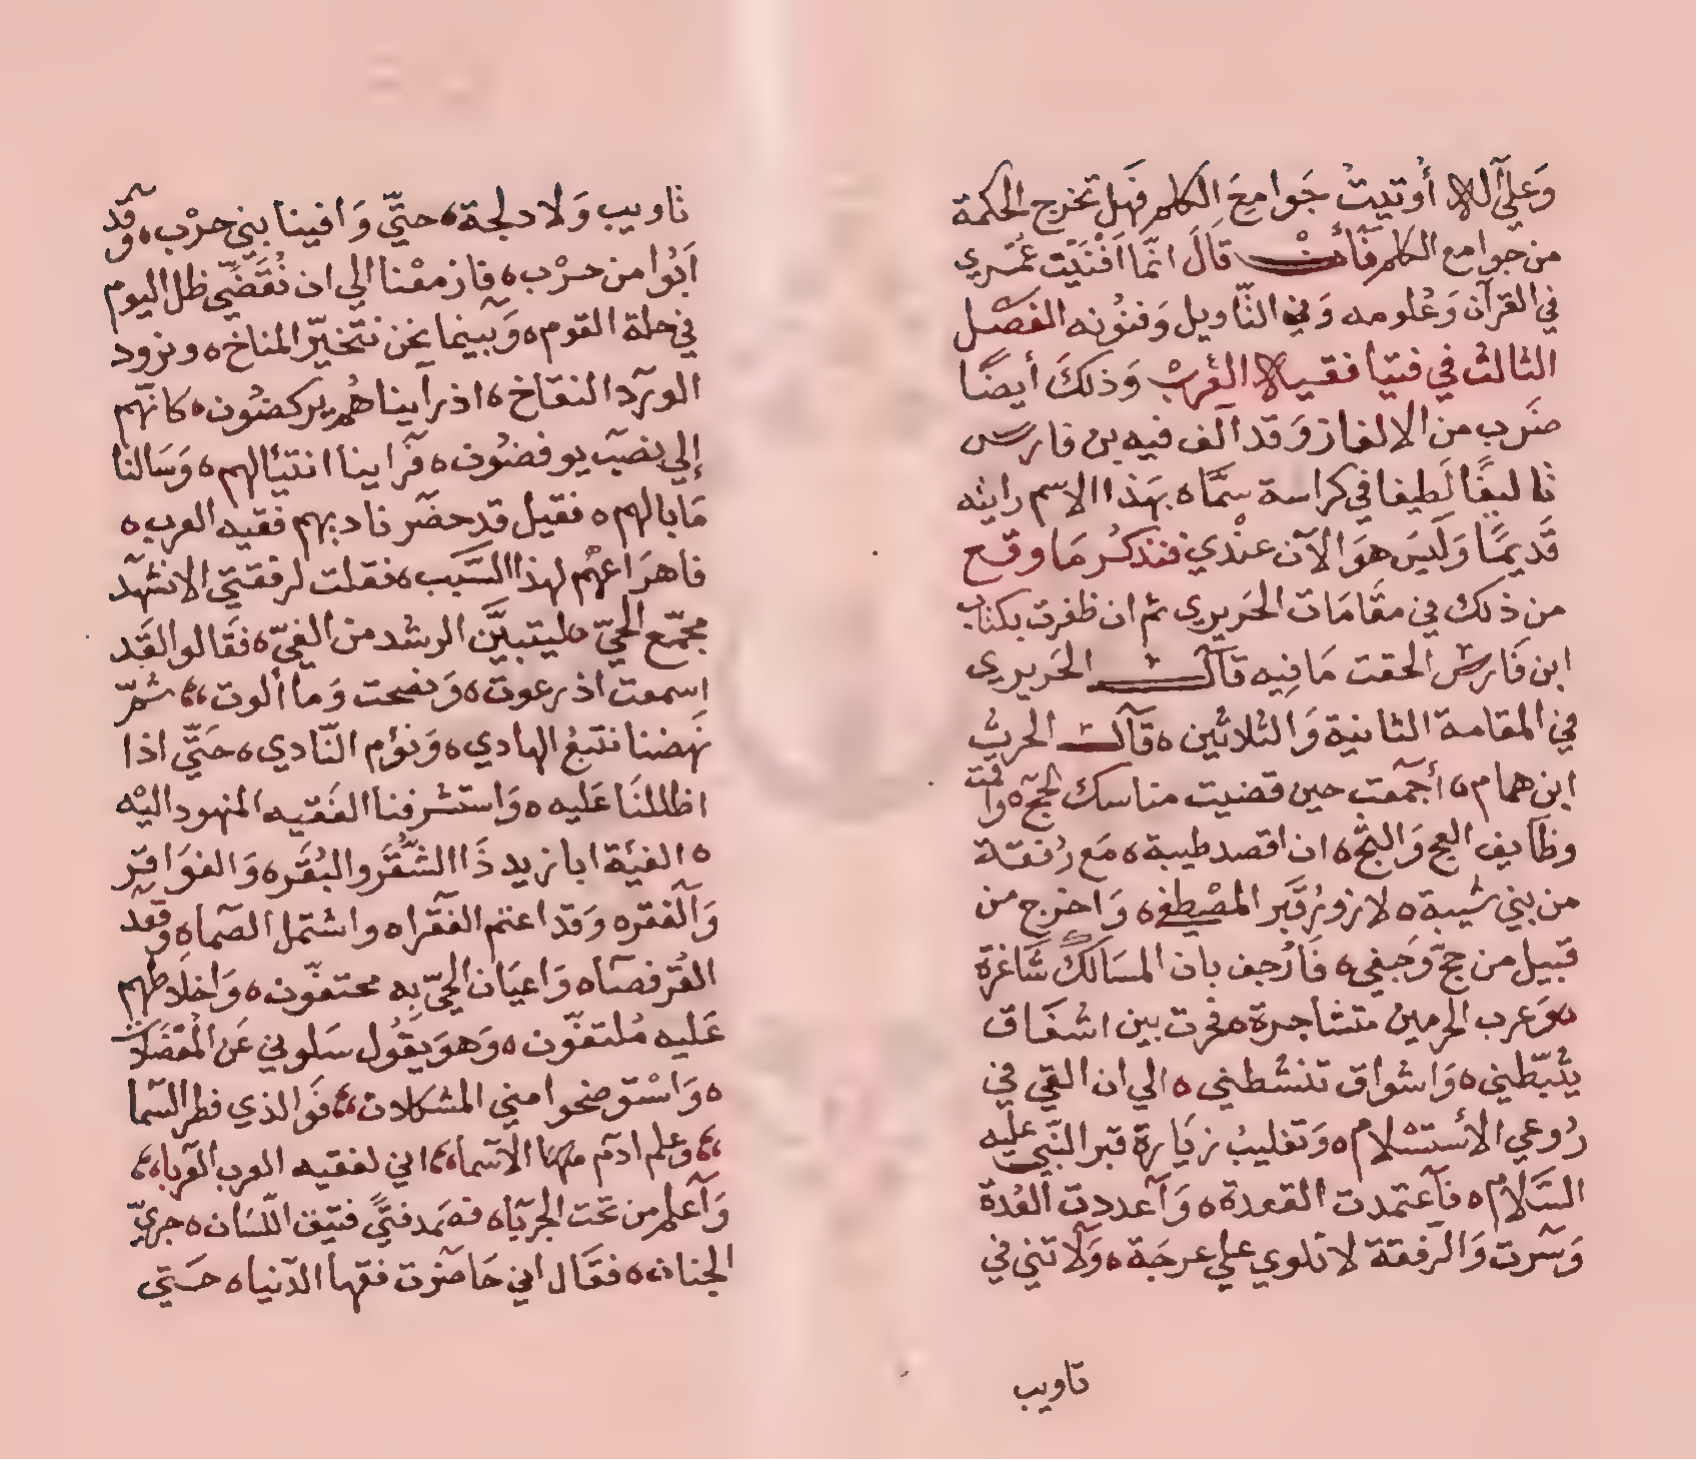 وَعلي آلاء أوتيتُ جَوامعَ الكلم فهَل تخرج الحكمة
من جوامع الكلم فآنت قاَلَ انمّا اَفْنَيْت عُمُري
في القرآن وَعُلومه وَفي التّاويل وَفنوُنه الفَصْل
الثالث في فتيا فقيه العَرب وَذلكَ أيضًا
ضَرب من الالغاز وَقد آلف فيه بن فارس
تاليفًا لَطيفا في كراسة سمَّاه بهَذا الاسم رايته
قَديمًا وَلَيسَ هوَ الآن عنْدي فنذكُر مَا وقع
من ذلك في مقَامَات الحَريري ثم ان ظفرت بكتاب
ابن فَارس الحقت مَا فِيه قآلَ الحَريري
في المقامة الثانية وَالثلاثين ه قآلَ الحَريث
ابن همام ه أجمَعت حين قضيت مناسك الحجّ ه واقمت
وظآيف العج وَالثج ه ان اقصد طيبة ه مَع رُفقة
من بني شيبة ه لازور قَبر المصْطفي ه وَاخرج من
قبيل من حجّ وَجَفي ه فَارُجف بان المسَالك شَاغرة
ه وَعرب الحرمين متشاجرة ه فحرت بين اشفَاق
يثبّطني ه وَاشواق تنشطني ه الي ان القي في
رُوعي الاستسْلام ه وَتغليبُ زيَارة قبر النَبّي عليه
السَّلامُ ه فآعتمدت القعدة ه وَآعددت العُدة
وَسَرت وَالرّفقة لا تلوي علي عرجَة ه وَلا تني في
تاويب
تاويب وَلا دلجة ه حتيّ وَافينا بني حرْب ه وَقد
آبُوا من حرْب ه فازمعْنا الي ان نُقَضّي ظل اليوم
في حلة القوم ه وَبينما نحن نتخيّر المناخ ه ونرود
الورد النقاخ ه اذ رآيناهُم يركضُون ه كانهّم
إلي نصبَ يوفضُون ه فَرآينا انتيالهم ه وَسَالنا
مَا بالهم ه فقيل قد حضَر ناديهم فقيه العرب ه
فاهرَاعهُم لهذا السَّبب ه فقلت لرفقتي الا نشهَد
مجمّع الحيّ ه ليتبيَّن الرشد من الغيّ ه فقَالوا لقَد
اسمعت اذ دعوت ه وَنصحت وَما ألوت ه ثمّ
نهَضنا نتبعُ الهادي ه وَنؤم النّادي ه حَتّي اذا
اظللنَا عَليه ه وَاستشرفنا الفَقيه المنهود اليْه
ه الفيَة ابا زيد ذَا الشُّقَر والبُقَر ه وَالفوَاقر
وَالفقر ه وَقد اعتم القفَرا ه واشتمل الصَما ه وقعَد
القُرفصآ ه وَاعيَان الحيّ بِه محتفوّن ه وَاخلاطهم
عَليه مُلتفوّن ه وَهوَ يقُول سَلوني عَن المُعْضَلات
ه وَاسْتَوضحوا مني المشكلات ه فوَالذي فطر السّما
وعلم ادَم الآسما ه اني لفقيه العرب العَربا ه
وَآعلم من تحت الجربَا ه فصَمد فتيً فتيق اللّسَان ه جريّ
الجنان ه فقَال اني حَاضَرت فقها الدّنيا ه حَتي